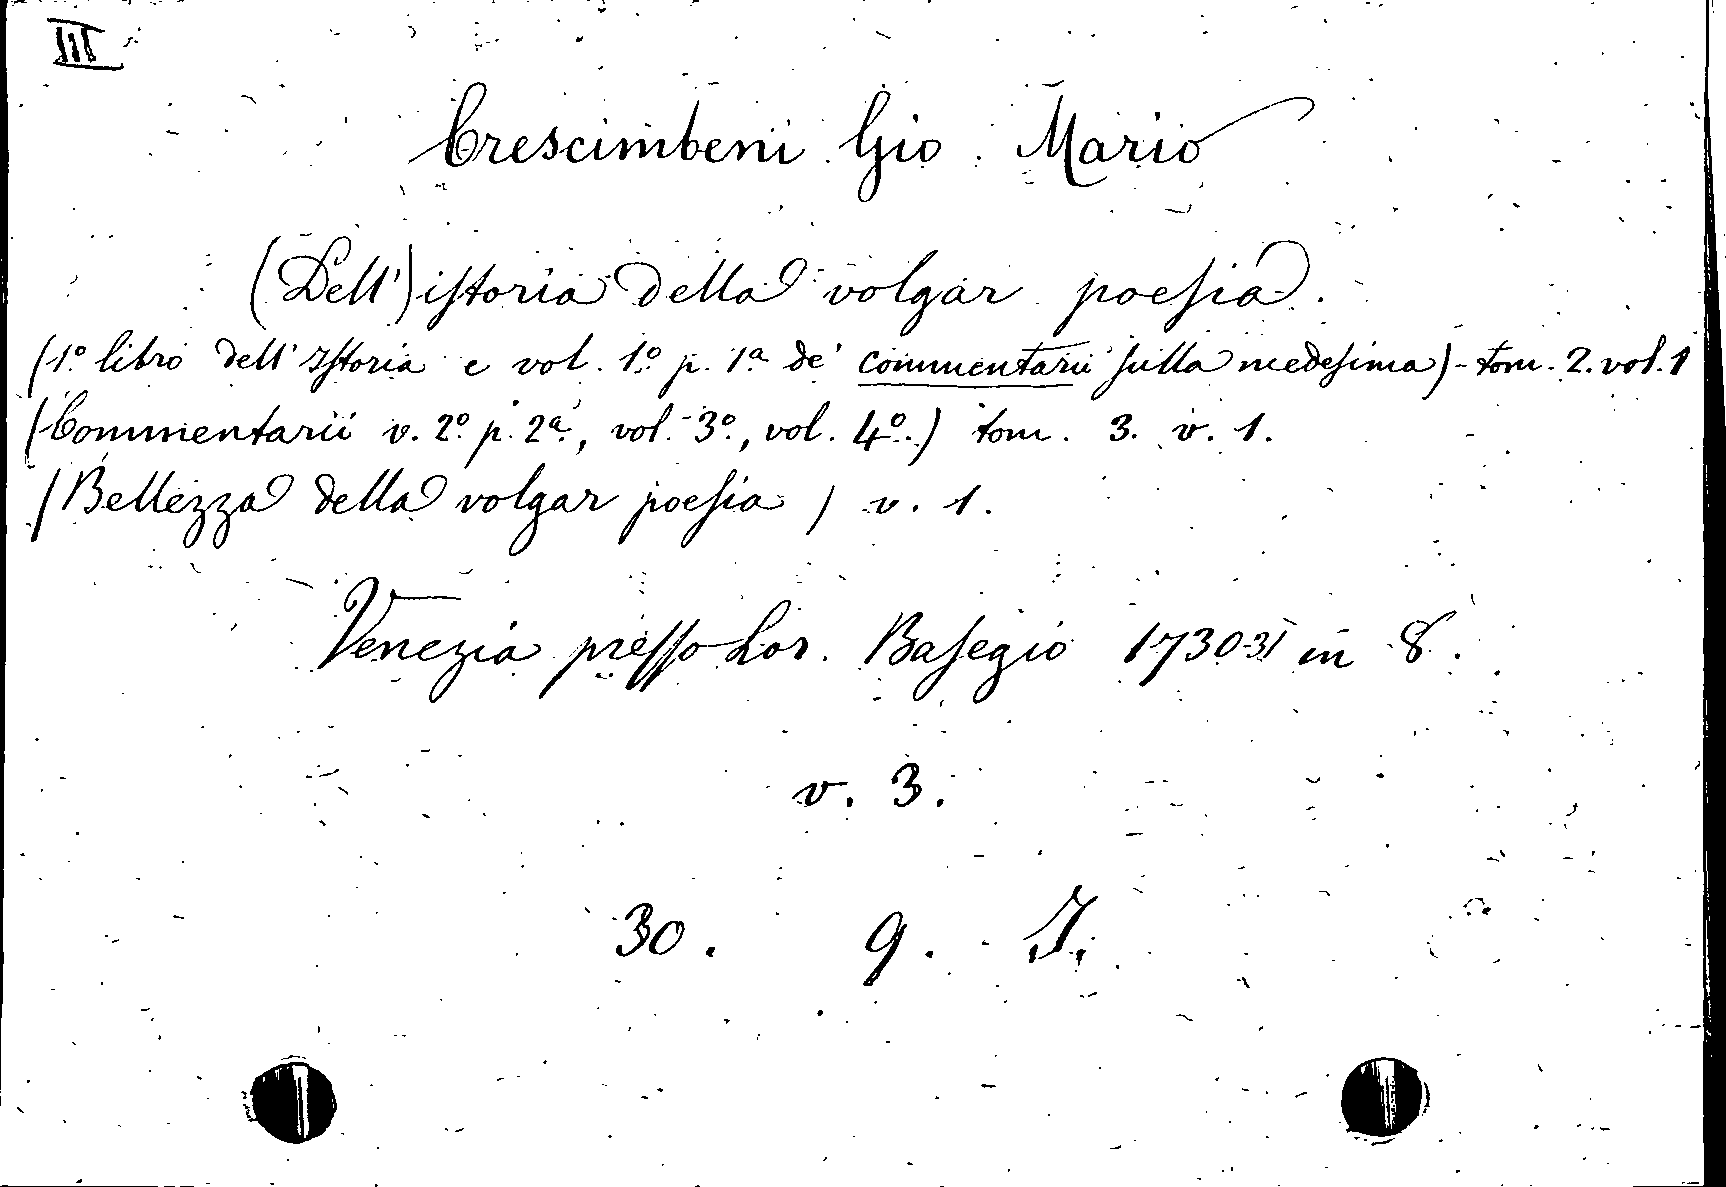 III
Crescimbeni Gio. Mario
(Dell') istoria della volgar poesia.
(1º libro dell'Istoria e vol. 1º p. 1ª de' commentarii sulla medesima) - tom. 2. vol. 1
(Commentarii v. 2º p. 2ª, vol. 3º, vol. 4º.) tom. 3. v. 1.
(Bellezza della volgar poesia) v. 1.
Venezia presso Lor. Basegio 1730-31 in 8.
v. 3.
30. 9. I.